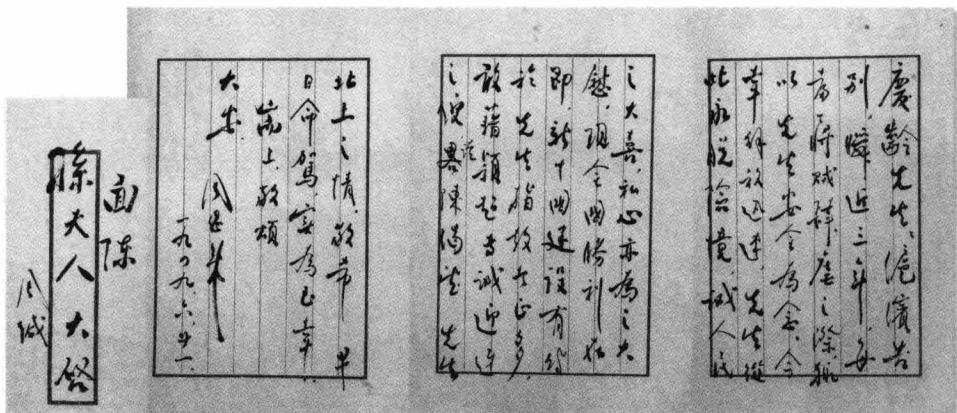 慶齡先生:滬濱告
別,瞬近三年,每
當蔣賊肆虐之際,輒
以先生安全為念。今
幸解放迅速,先生從
此永脫險境,誠人民
之大喜,私心亦為之大
慰。現全國勝利在
即,新中國建設有待
於先生指教者正多,
敢藉穎超專誠迎迓
之便,謹陳渴望先生
北上之情,敬希早
日命駕,實為至幸。
耑上,敬頌
大安 周恩來
一九四九、六、廿一、
面陳
孫夫人大啓
周緘